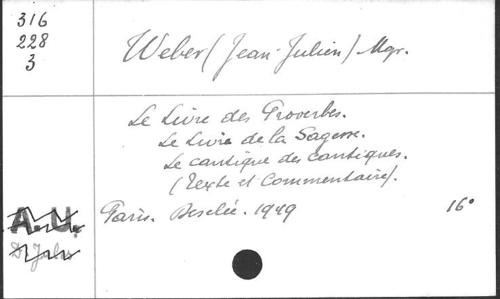 316
228
3
Weber (Jean-Julien) Mgr.
Le Livre des Proverbes.
Le Livre de la Sagesse.
Le cantique des cantiques.
(Texte et Commentaire).
Paris. Desclée. 1949 16°
A.U.